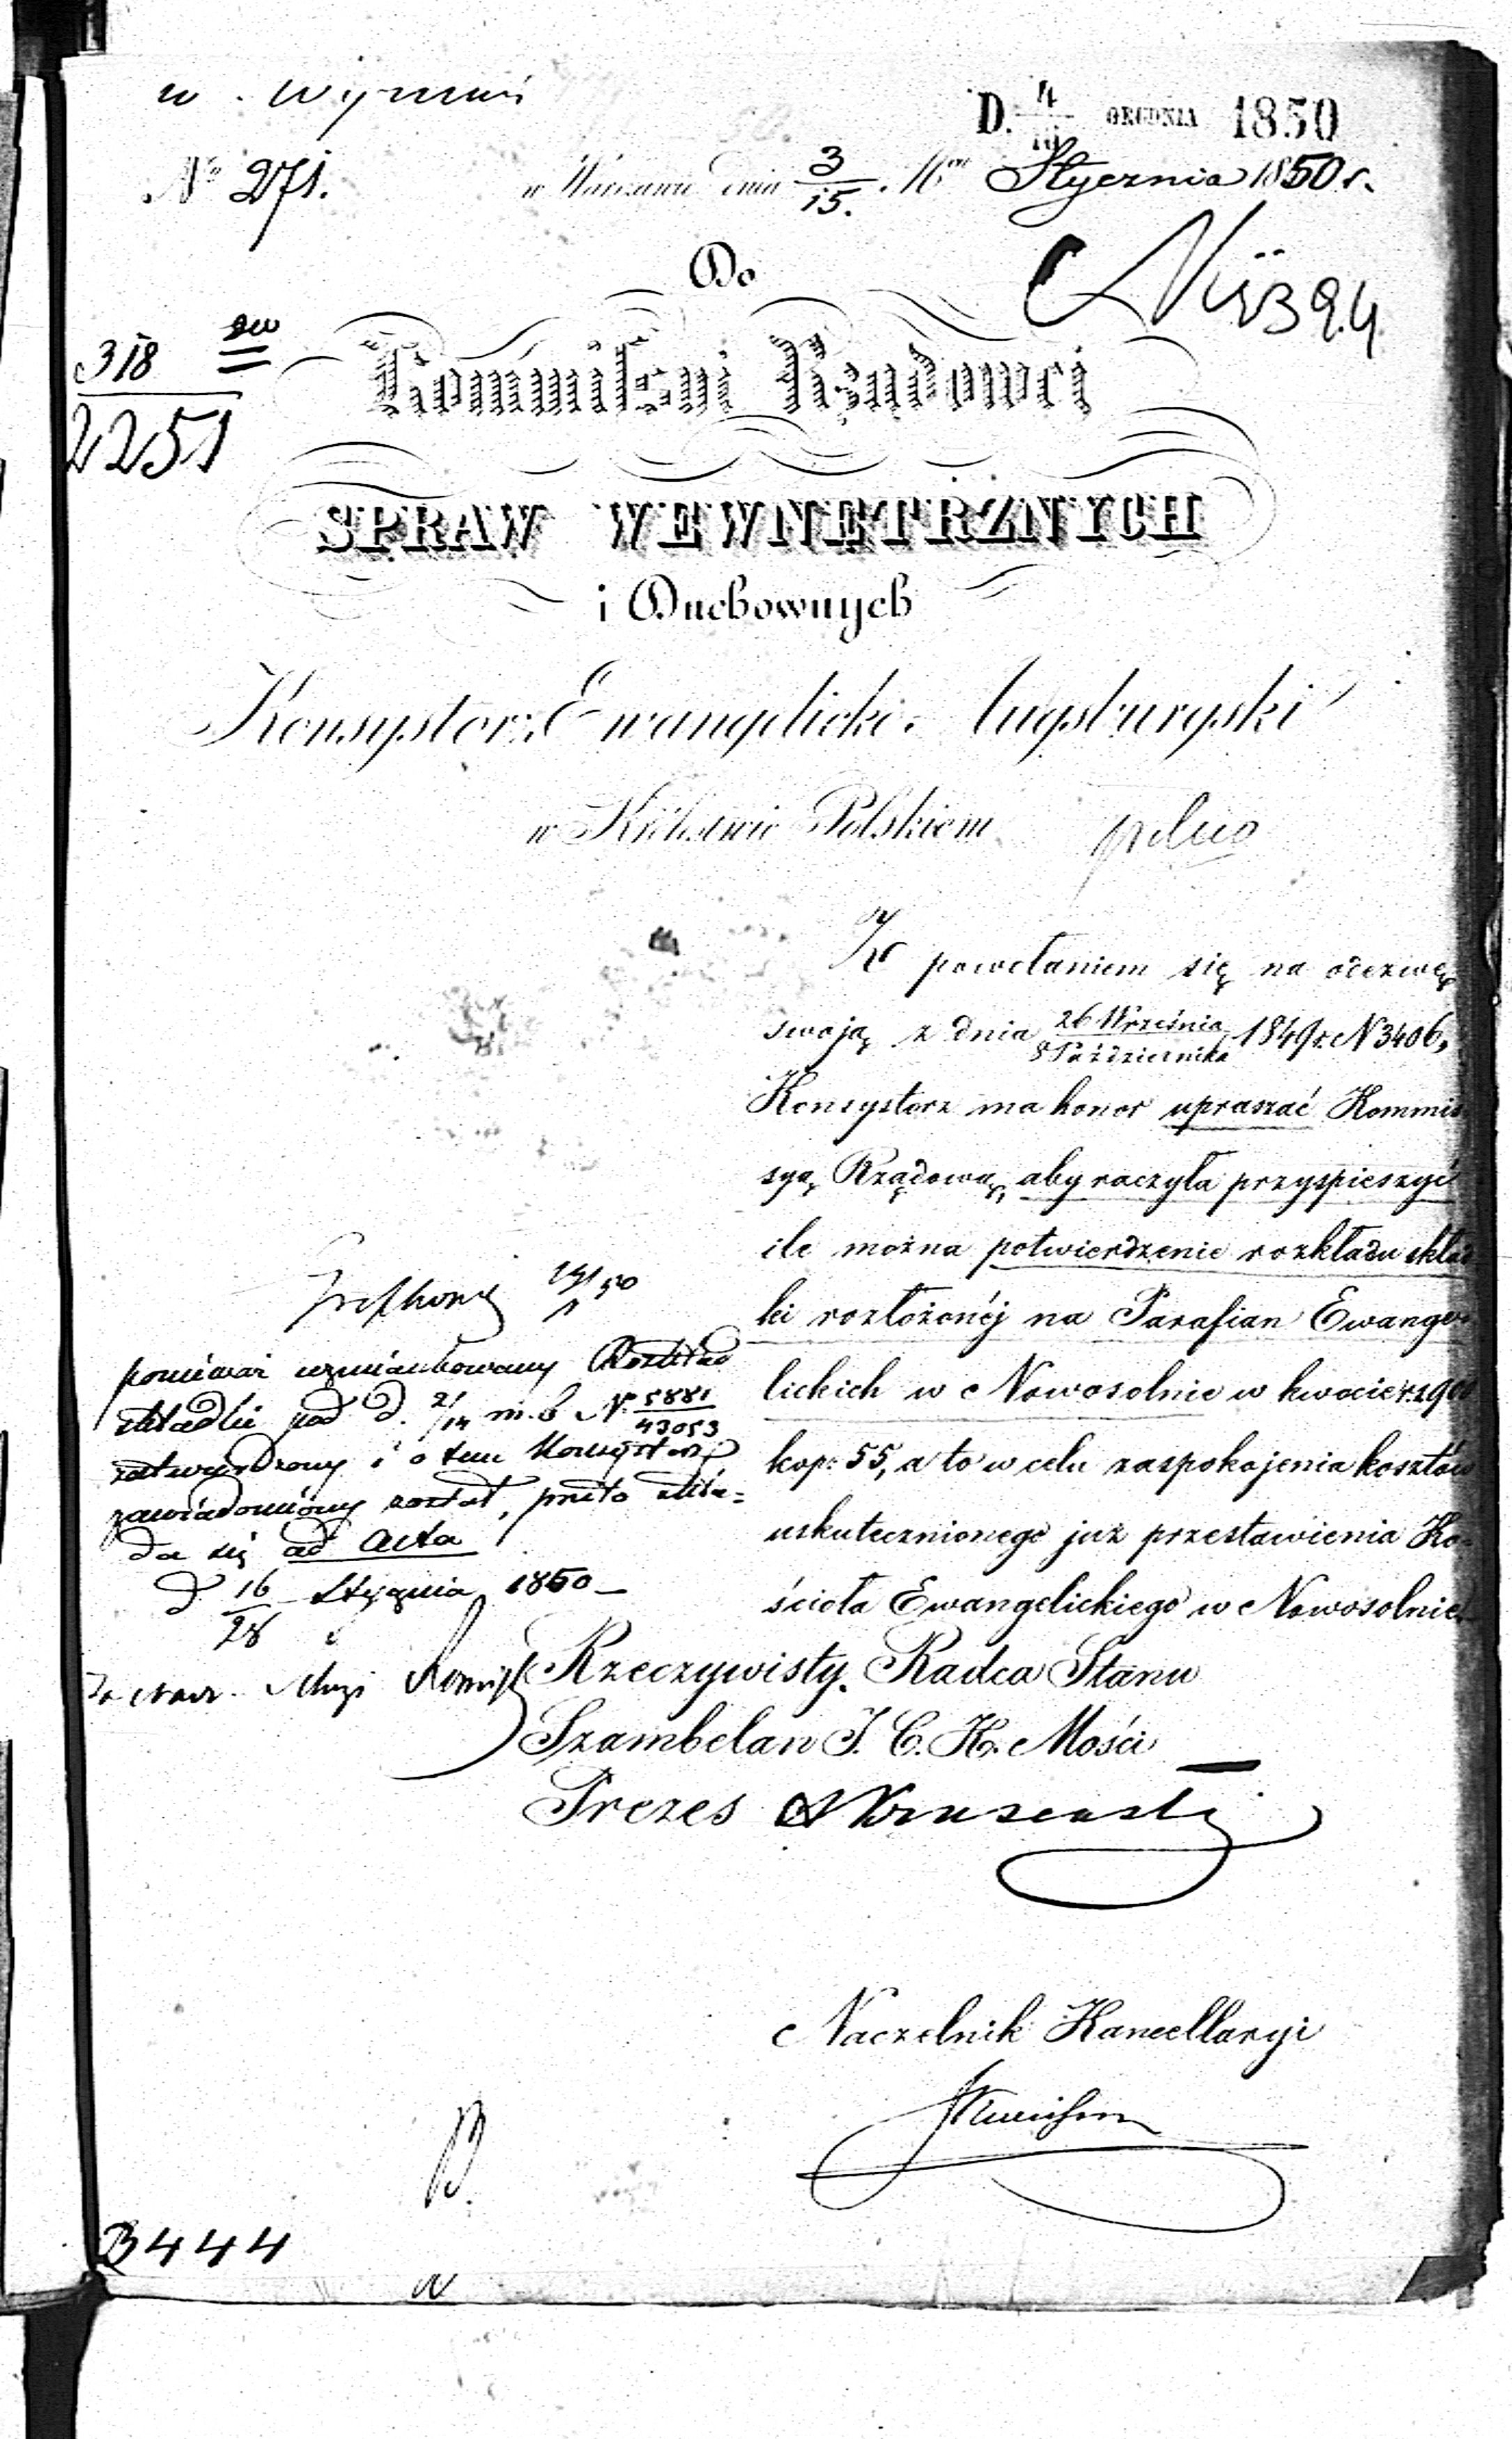 D. 4/16 GRUDNIA 1850
No 271. w Warszawie dnia 3/15. Mca Stycznia 1850 r.
Do
318
2251
Kommissyi Rządowéj
SPRAW WEWNĘTRZNYCH
i Duchownych
Konsystorz Ewangelicki Augsburgski
w Królestwie Polskiem
W powołaniem się na odezwę
swoją z dnia 26 Września/8 Października 1849 r. N 3406,
Konsystorz ma honor upraszać Kommis
syą Rządową, aby raczyła przyspieszyć
ile można potwierdzenie rozkładu skład
ki rozłożonéj na Parafian Ewange
lickich w Nowosolnie w kwocie rs. 900
kop: 55, a to w celu zaspokojenia kosztów
uskutecznionego już przestawienia Ko
ścioła Ewangelickiego w Nowosolnie.
14/1 50
ponieważ wzmiankowany Rozkład
składki pod d. 2/14 m. b. N. 5881/43053
zatwierdzony i o tem Konsystorz
zawiadomiony został, przeto skła=
da się ad acta
d 16/28 Stycznia 1850 –
Rzeczywisty Radca Stanu
Szambelan J. C. K. Mości
Prezes
Naczelnik Kancellaryi
3444